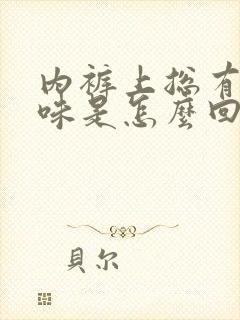 内裤上总有
味是怎麼回
貝尔